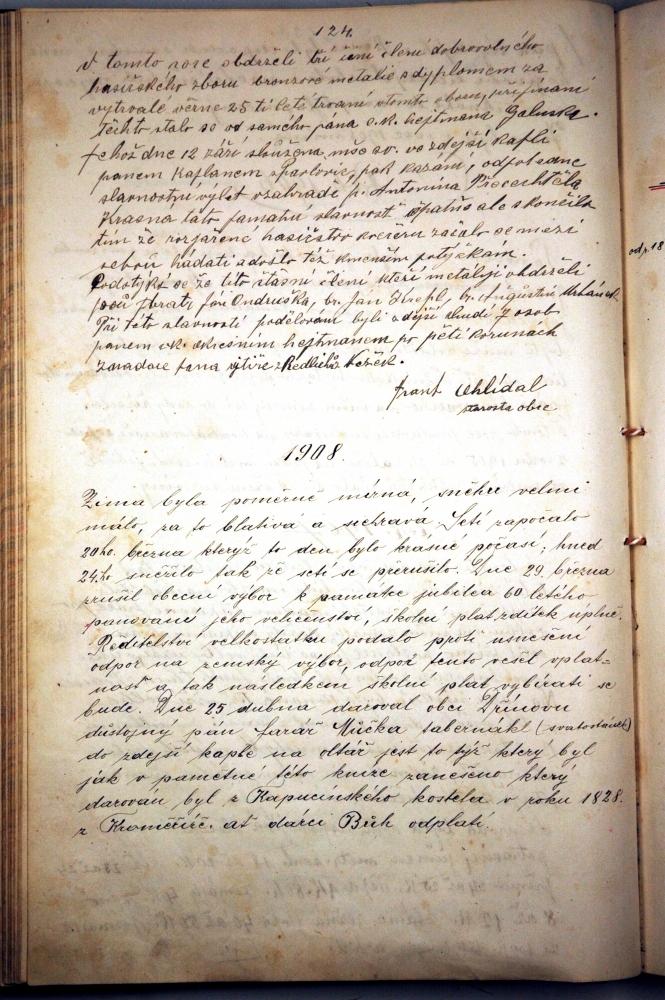 124.
V tomto roce obdrželi tři činí členi dobrovolného
hasičského sboru bronzové metalie s dyplomem za
vytrvalé věrné 25 ti leté trvaní v tomto sboru, přijímaní
těchto stalo se od samého pána c.k. hejtmana Galuska.
Téhož dne 12 září sloužena mše sv. ve zdejší kapli
panem Kaplanem z Pavlovic, pak kazání, odpoledne
slavnostní výlet v zahradě p. Antonina Přecechtěla
Krasna tato pamatní slavnost špatně ale skončila
tím že rozjařené hasičstvo počalo se mezi
sebou hádati a došlo též kmenším potyčkám.
Podotýká se že tito šťastní členi kteří metalyji obdrželi
jsou bratr Jan Ondruška, br. Jan Strepl, br. Augustin Urbánek.
Při této slavnosti podělování byli zdejší chudí 7 osob
panem c.k. okresním hejtmanem po pěti korunách
Frant Ohlídal
starosta obce
1908.
Zima byla poměrně mírná, sněhu velmi
málo, za to blativá a sychravá Setí započalo
20ho. března kterýž to den bylo krasné počasí, hned
24.ho sněžilo tak že setí se přerušilo. Dne 29. března
zrušil obecní výbor k pamatce jubilea 60 letého
panování jeho veličenství, školní plat zdítek uplně.
Ředitelství velkostatku podalo proti usnesení
odpor na zemský výbor, odpor tento vešel v plat-
nost a tak následkem školní plat vybírati se
bude. Dne 25 dubna daroval obci Dřínovu
důstojný pán farář Mučka tabernákl (svatostánek)
do zdejší kaple na oltář jest to týž který byl
jak v pametné této knize zanešeno který
darován byl z Kapucínského kostela v roku 1828.
z Kroměříže. ať dárci Bůh odplatí.
odp. 18